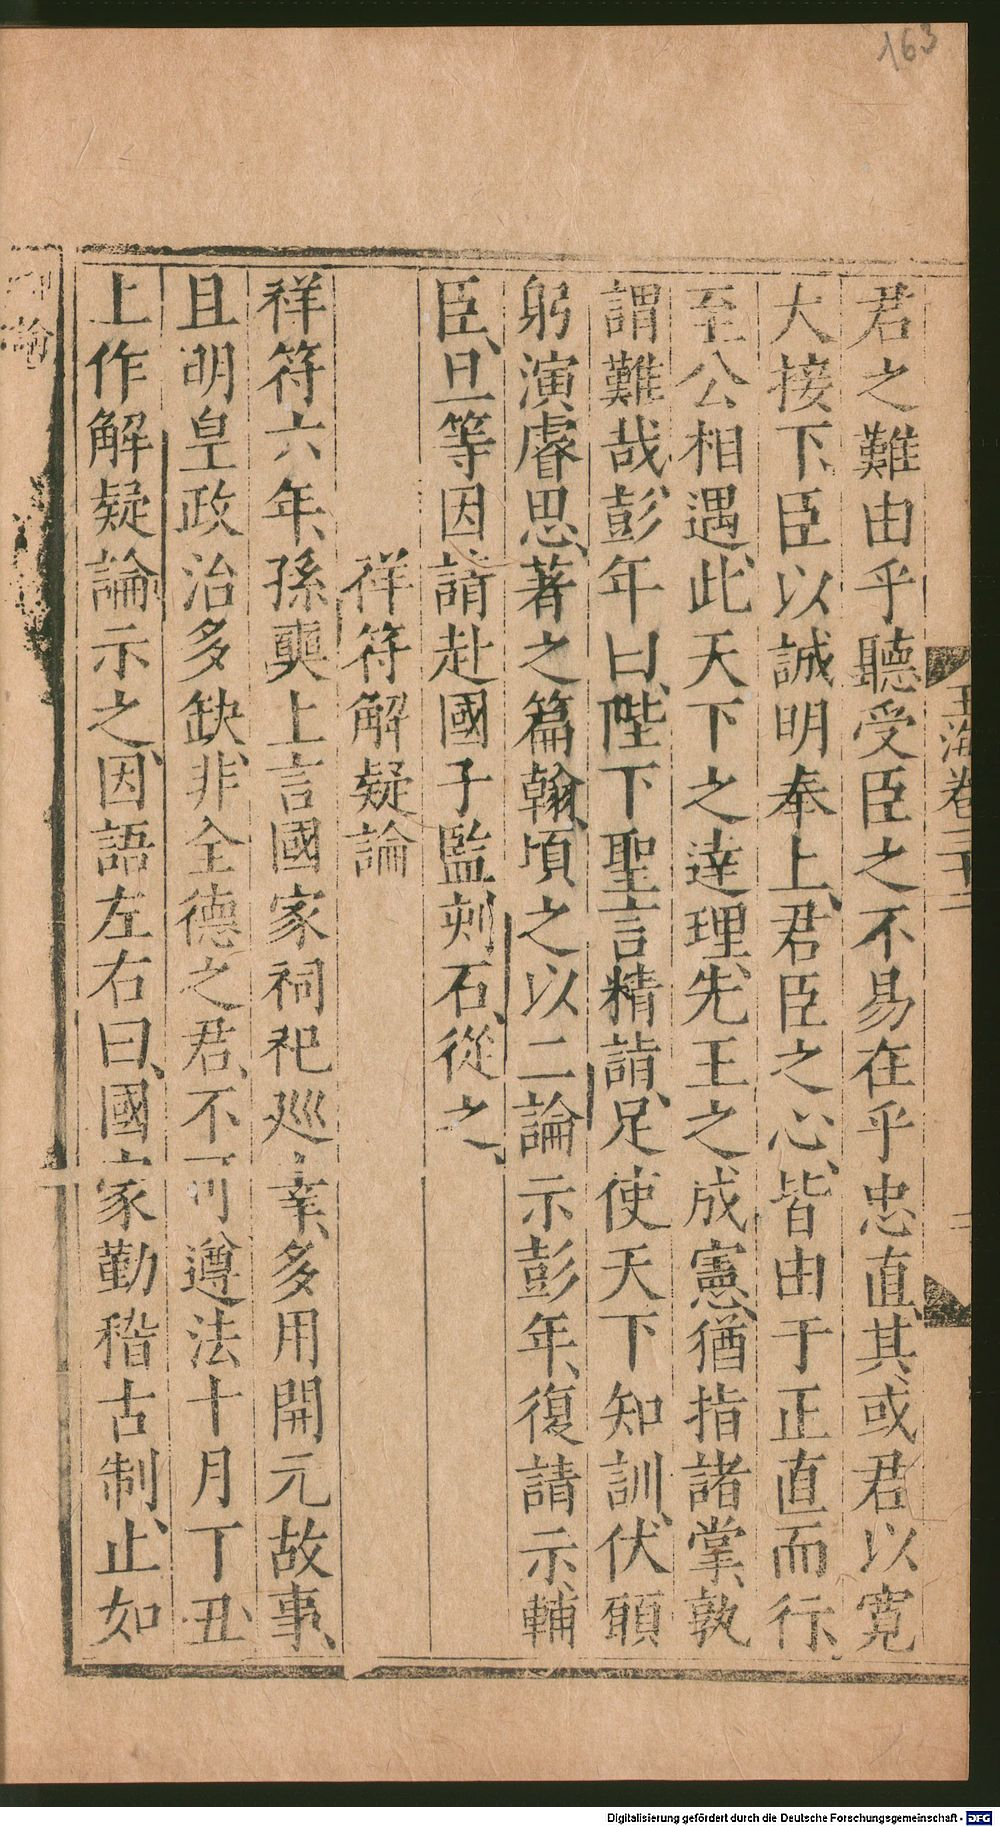 163
玉海卷三十二
君之難由乎聽受臣之不易在乎忠直其或君以寛
大接下臣以誠明奉上君臣之心皆由于正直而行
至公相遇此天下之達理先王之成憲猶指諸掌孰
謂難哉彭年曰陛下聖言精詣足使天下知訓伏願
躬演睿思著之篇翰頃之以二論示彭年復請示輔
臣旦等因請赴國子監刻石從之
祥符解疑論
祥符六年孫奭上言國家祠祀廵幸多用開元故事
且明皇政治多缺非全德之君不可遵法十月丁丑
上作解疑論示之因語左右曰國家勤稽古制止如
論
Digitalisierung gefördert durch die Deutsche Forschungsgemeinschaft - DFG